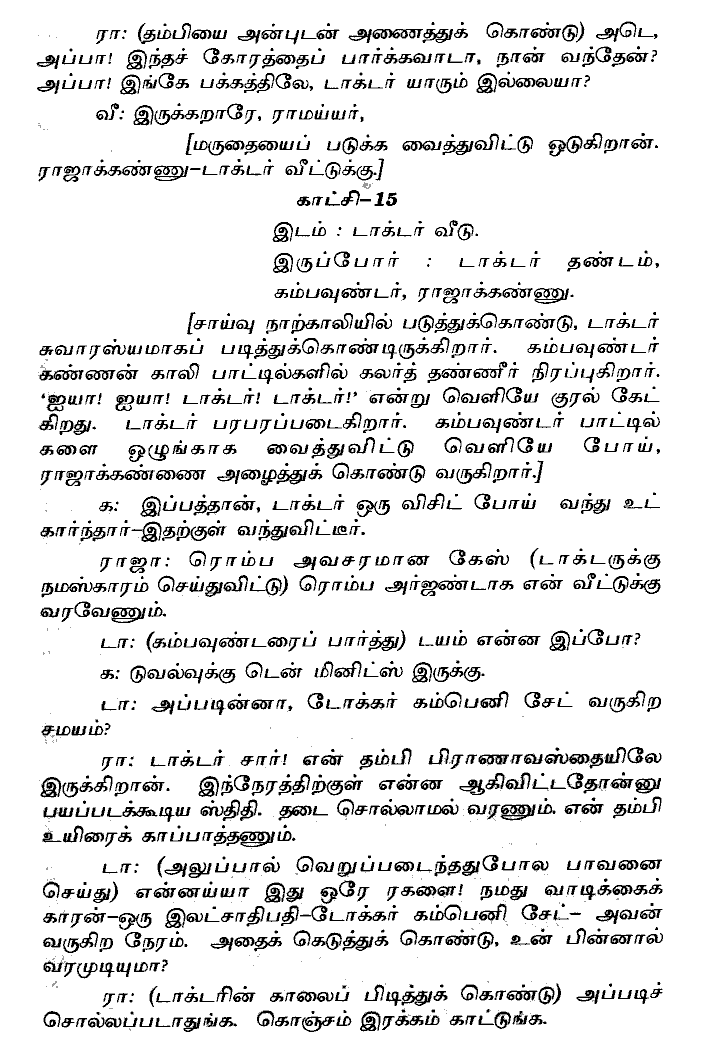 ரா: (தம்பியை அன்புடன் அணைத்துக் கொண்டு) அடெ,
அப்பா! இந்தச் கோரத்தைப் பார்க்கவாடா, நான் வந்தேன்?
அப்பா! இங்கே பக்கத்திலே, டாக்டர் யாரும் இல்லையா?
வீ: இருக்கறாரே, ராமய்யர்,
[மருதையைப் படுக்க வைத்துவிட்டு ஓடுகிறான்.
ராஜாக்கண்ணு–டாக்டர் வீட்டுக்கு.]
காட்சி–15
இடம் : டாக்டர் வீடு.
இருப்போர் : டாக்டர் தண்டம்,
கம்பவுண்டர், ராஜாக்கண்ணு.
[சாய்வு நாற்காலியில் படுத்துக்கொண்டு, டாக்டர்
சுவாரஸ்யமாகப் படித்துக்கொண்டிருக்கிறார். கம்பவுண்டர்
கண்ணன் காலி பாட்டில்களில் கலர்த் தண்ணீர் நிரப்புகிறார்.
‘ஐயா! ஐயா! டாக்டர்! டாக்டர்!’ என்று வெளியே குரல் கேட்
கிறது. டாக்டர் பரபரப்படைகிறார். கம்பவுண்டர் பாட்டில்
களை ஒழுங்காக வைத்துவிட்டு வெளியே போய்,
ராஜாக்கண்ணை அழைத்துக் கொண்டு வருகிறார்.]
க: இப்பத்தான், டாக்டர் ஒரு விசிட் போய் வந்து உட்
கார்ந்தார்–இதற்குள் வந்துவிட்டீர்.
ராஜா: ரொம்ப அவசரமான கேஸ் (டாக்டருக்கு
நமஸ்காரம் செய்துவிட்டு) ரொம்ப அர்ஜண்டாக என் வீட்டுக்கு
வரவேணும்.
டா: (கம்பவுண்டரைப் பார்த்து) டயம் என்ன இப்போ?
க: டுவல்வுக்கு டென் மினிட்ஸ் இருக்கு.
டா: அப்படின்னா, டோக்கர் கம்பெனி சேட் வருகிற
சமயம்?
ரா: டாக்டர் சார்! என் தம்பி பிராணாவஸ்தையிலே
இருக்கிறான். இந்நேரத்திற்குள் என்ன ஆகிவிட்டதோன்னு
பயப்படக்கூடிய ஸ்திதி. தடை சொல்லாமல் வரணும். என் தம்பி
உயிரைக் காப்பாத்தணும்.
டா: (அலுப்பால் வெறுப்படைந்ததுபோல பாவனை
செய்து) என்னய்யா இது ஒரே ரகளை! நமது வாடிக்கைக்
காரன்–ஒரு இலட்சாதிபதி–டோக்கர் கம்பெனி சேட்– அவன்
வருகிற நேரம். அதைக் கெடுத்துக் கொண்டு, உன் பின்னால்
வரமுடியுமா?
ரா: (டாக்டரின் காலைப் பிடித்துக் கொண்டு) அப்படிச்
சொல்லப்படாதுங்க. கொஞ்சம் இரக்கம் காட்டுங்க.